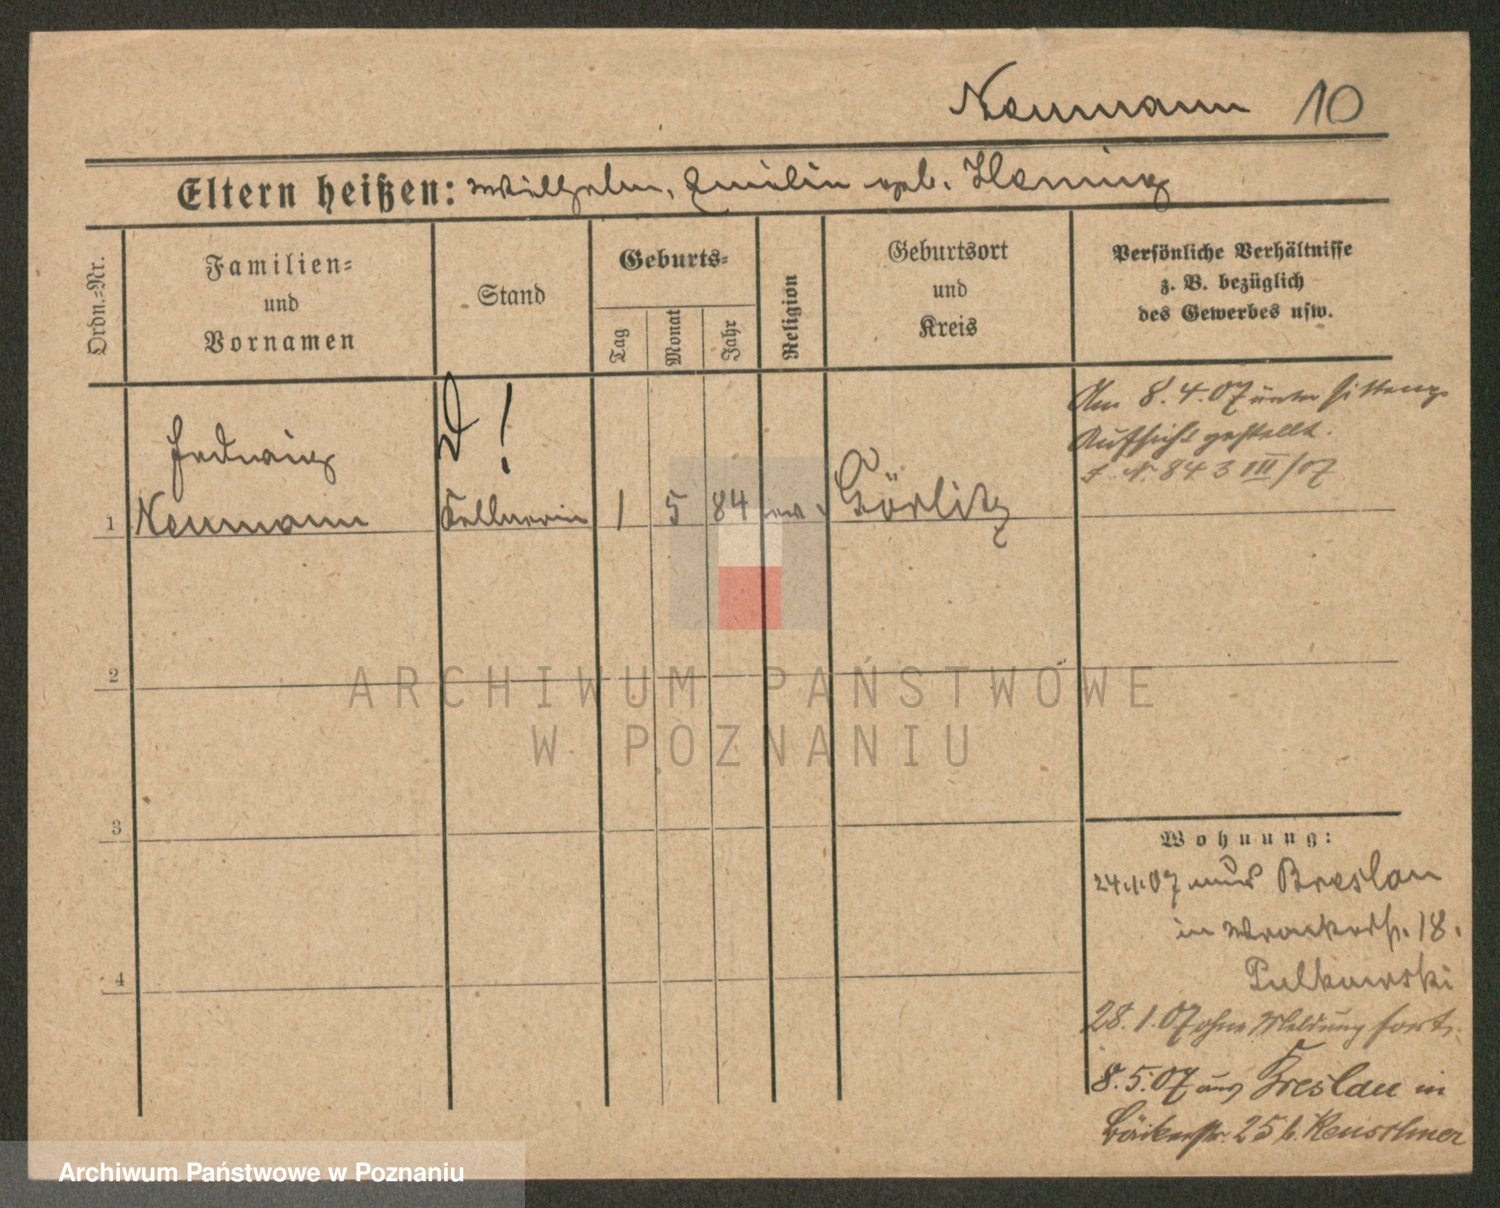 Neumann 10
Eltern heißen: Wilhelm, Emilie geb. Hennig
Ordn.=Nr.
Familien=
und
Vornamen
Stand
Geburts=
Tag
Monat
Jahr
Religion
Geburtsort
und
Kreis
Persönliche Verhältnisse
z. B. bezüglich
des Gewerbes usw.
D!
Hedwig
1 Neumann Kellnerin 1 5 84 ev. Görlitz
Am 8.4.07 unter sitten
Aufsicht gestellt.
J. N. 843 III/07
2
3
4
Wohnung:
24.1.07 aus Breslau
in 18.
Pulkowski
28.1.07 ohne Meldung fort.
8.5.07 aus Breslau in
Bäckerstr. 25 b. Reuschner
ARCHIWUM PAŃSTWOWE
W POZNANIU
Archiwum Państwowe w Poznaniu